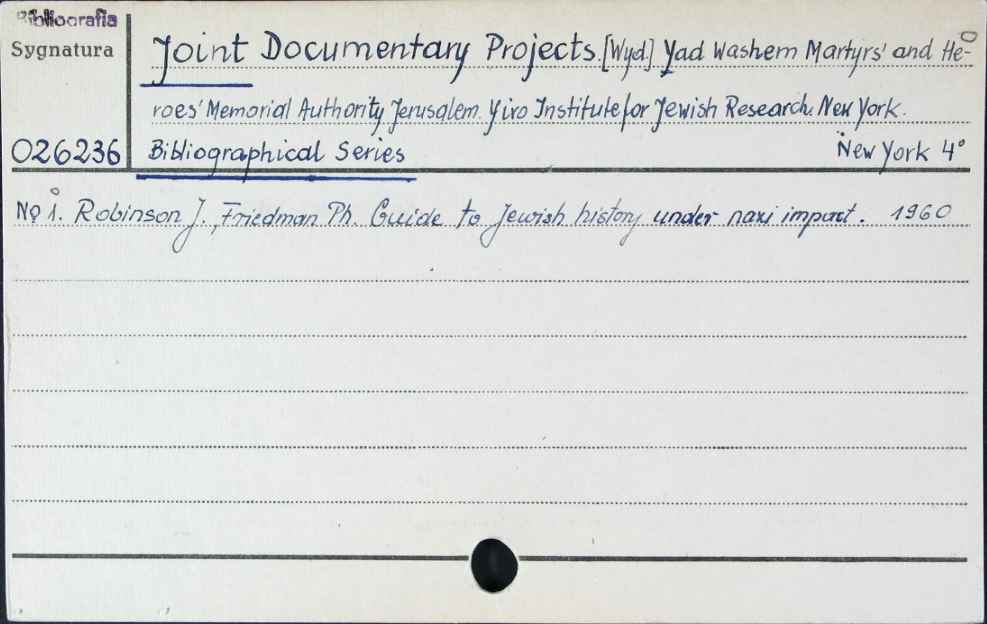 Bibliografia
Sygnatura
Joint Documentary Projects. [Wyd] Yad Washem Martyrs' and He-
roes' Memorial Authority Jerusalem. Yivo Institute for Jewish Research. New York.
026236 Bibliographical Series New York 4°
No 1. Robinson J., Friedman Ph. Guide to Jewish history under naxi impact. 1960